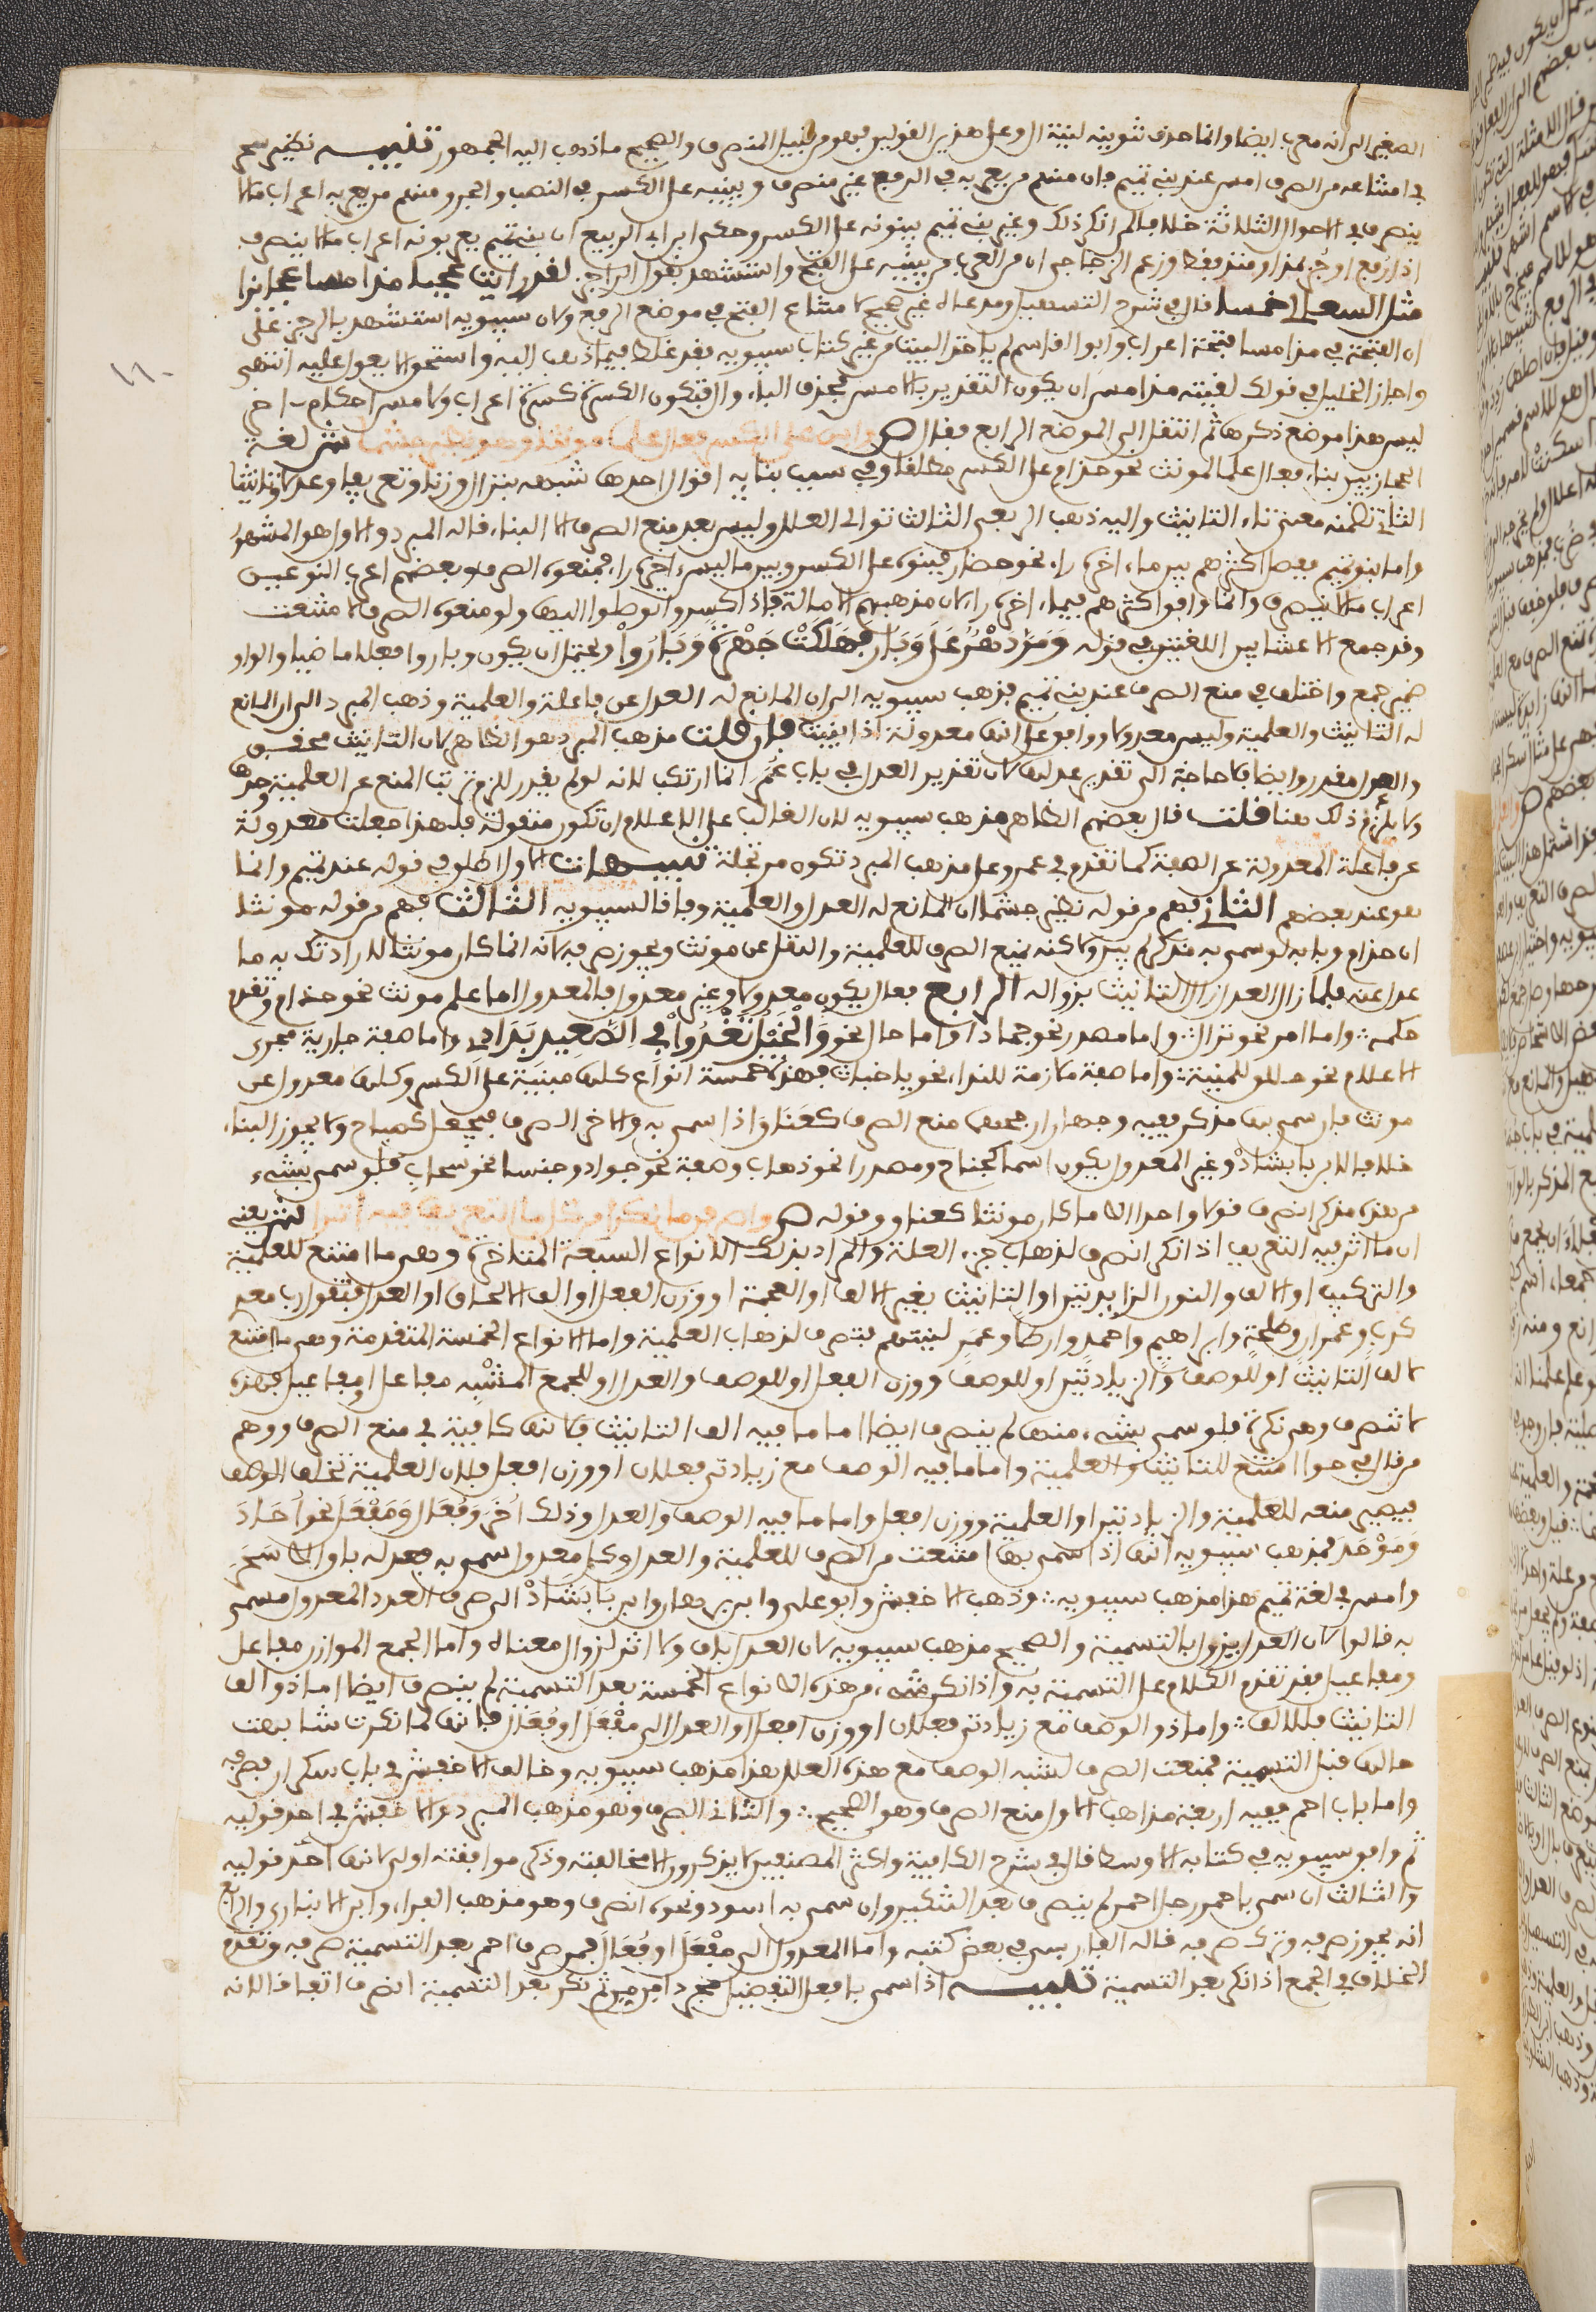 الصغير الى انه معرب ايضا وانما حذف تنوينه لنية ال وعلى هذين القولين فهو من قبيل المنصرف والصحيح ما ذهب اليه الجمهور تنبيه نظير سحر
في امتناعه من الصرف امس عند بني تميم فان منهم من يعربه في الرفع غير منصرف ويبنيه على الكسر في النصب والجر ومنهم من يعربه اعراب ما لا
ينصرف في الاحوال الثلاثة خلافا لمن انكر ذلك وغير بني تميم يبنونه على الكسر وحكى ابن ابي الربيع ان بني تميم يعربونه اعراب ما لا ينصرف
اذا رفع او جر بمذ او منذ فقط وزعم الزجاجي ان من العرب من يبنيه على الفتح واستشهد بقول الراجز لقد رايت عجبا مذ امسا عجائزا
مثل السعالي خمسا قال في شرح التسهيل ومدعاه غير صحيح لامتناع الفتح في موضع الرفع ولان سيبويه استشهد بالرجز على
ان الفتحة في مذ امسا فتحة اعراب وابو القاسم لم ياخذ البيت من غير كتاب سيبويه فقد غلط فيما ذهب اليه واستحق الا يعول عليه انتهى
واجاز الخليل في قولك لقيته مذ امس ان يكون التقدير بالامس فحذف الباء وال فتكون الكسرة كسرة اعراب ولامس احكام اخر
ليس هذا موضع ذكرها ثم انتقل الى الموضع الرابع فقال ص وابن على الكسر فعال علما مونثا وهو نظير جشما ش لغة
الحجازيين بناء فعال علما لمونث نحو حذام على الكسر مطلقا وفي سبب بنايه اقوال احدها شبهه بنزال وزنا وتعريفا وعدلا وتانيثا
الثاني تضمنه معنى تاء التانيث واليه ذهب الربعي الثالث توالي العلل وليس بعد منع الصرف الا البناء قاله المبرد والاول هو المشهور
واما بنو تميم ففصل اكثرهم بين ما اخره راء نحو حضار فبنوه على الكسر وبين ما ليس اخره راء فمنعوه الصرف وبعضهم اعرب النوعين
اعراب ما لا ينصرف وانما وافق اكثرهم فيما اخره راء لان مذهبهم الامالة فاذا كسروا توصلوا اليها ولو منعوه الصرف لامتنعت
وقد جمع الاعشى بين اللغتين في قوله ومر دهر على وبار فهلكت جهرة وبار واو ويحتمل ان يكون وباروا فعلا ماضيا والواو
ضمير جمع واختلف في منع الصرف عند بني تميم فذهب سيبويه الى ان المانع له العدل عن فاعلة والعلمية وذهب المبرد الى ان المانع
له التانيث والعلمية وليس معدولا ووافق على انها معدولة اذا بنيت فان قلت مذهب المبرد هو الظاهر لان التانيث محقق
والعدل مقدر وايضا فلا حاجة الى تقدير عدلها لان تقدير العدل في باب عمر انما ارتكب لانه لو لم يقدر للزم ترتب المنع عن العلمية وحدها
ولا يلزم ذلك هنا قلت قال بعضهم الظاهر مذهب سيبويه لان الغالب على الاعلام ان تكون منقولة فلهذا جعلت معدولة
عن فاعلة المعدولة عن الصفة كما تقدم في عمر وعلى مذهب المبرد تكون مرتجلة تنبيهات الاول اطلق في قوله عند تميم وانما
هو عند بعضهم الثاني فهم من قوله نظير جشما ان المانع له العدل والعلمية وفاقا لسيبويه الثالث فهم من قوله مونثا
ان حذام وبابه لو سمي به مذكر لم يبن ولكنه يمنع الصرف للعلمية والنقل عن مونث ويجوز صرفه لانه انما كان مونثا لارادتك به ما
عدل عنه فلما زال العدل زال التانيث بزواله الرابع فعال يكون معدولا وغير معدول فالمعدول اما علم مونث نحو حذام وتقدم
حكمه واما امر نحو نزال واما مصدر نحو حماد واما حال نحو والخيل تعدو في الصعيد بداد واما صفة جارية مجرى
الاعلام نحو حلاق للمنية واما صفة لازمة للنداء نحو يا خباث فهذه خمسة انواع كلها مبنية على الكسر وكلها معدول عن
مونث فان سمي بها مذكر ففيه وجهان ارجحهما منع الصرف كعناق اذا سمي به والاخر الصرف فيجعل كصباح ولا يجوز البناء
خلافا لابن بابشاذ وغير المعدول يكون اسما كجناح ومصدرا نحو ذهاب وصفة نحو جواد وجنسا نحو سحاب فلو سمي بشيء
من هذه مذكر انصرف قولا واحدا الا ما كان مونثا كعناق وقوله ص واصرفن ما نكرا من كل ما التعريف فيه اثرا ش يعني
ان ما اثر فيه التعريف اذا نكر انصرف لذهاب جزء العلة والمراد بذلك الانواع السبعة المتاخرة وهي ما امتنع للعلمية
والتركيب او الالف والنون الزايدتين او التانيث بغير الالف او العجمة او وزن الفعل او الف الالحاق او العدل فتقول رب معد
كرب وعمران وطلحة وابراهيم واحمد وارطى وعمر لقيتهم فتصرف لذهاب العلمية واما الانواع الخمسة المتقدمة وهي ما امتنع
لالف التانيث او للوصف والزيادتين او للوصف ووزن الفعل او للوصف والعدل او للجمع المشبه مفاعل او مفاعيل فهذه
لا تنصرف وهي نكرة فلو سمي بشيء منها لم ينصرف ايضا اما ما فيه الف التانيث فلانها كافية في منع الصرف ووهم
من قال في حواء امتنع للتانيث والعلمية واما ما فيه الوصف مع زيادتي فعلان او وزن افعل فلان العلمية تخلف الوصف
فيصير منعه للعلمية والزيادتين او العلمية ووزن افعل واما ما فيه الوصف والعدل وذلك اخر وفعال ومفعل نحو احاد
وموحد فمذهب سيبويه انها اذا سمي بها امتنعت من الصرف للعلمية والعدل وكل معدول سمي به فعدله باق الا سحر
وامس في لغة تميم هذا مذهب سيبويه وذهب الاخفش وابو علي وابن برهان وابن بابشاذ الى صرف العدد المعدول مسمى
به قالوا لان العدل يزول بالتسمية والصحيح مذهب سيبويه لان العدل باق ولا اثر لزوال معناه واما الجمع الموازن مفاعل
ومفاعيل فقد تقدم الكلام على التسمية به واذا نكر شيء من هذه الانواع الخمسة بعد التسمية لم ينصرف ايضا اما ذو الف
التانيث فللالف واما ذو الوصف مع زيادتي فعلان او وزن افعل او العدل الى مفعل او فعال فلانها لما نكرت شابهت
حالها قبل التسمية فمنعت الصرف لشبه الوصف مع هذه العلل هذا مذهب سيبويه وخالف الاخفش في باب سكران فصرفه
واما باب احمر ففيه اربعة مذاهب الاول منع الصرف وهو الصحيح والثاني الصرف وهو مذهب المبرد والاخفش في احد قوليه
ثم وافق سيبويه في كتابه الاوسط قال في شرح الكافية واكثر المصنفين لا يذكرون الا مخالفته وذكر موافقته اولى لانها اخر قوليه
والثالث ان سمي باحمر رجل احمر لم ينصرف بعد التنكير وان سمي به اسود ونحوه انصرف وهو مذهب الفراء وابن الانباري والرابع
انه يجوز صرفه وترك صرفه قاله الفارسي في بعض كتبه واما المعدول الى مفعل او فعال فمن صرف احمر بعد التسمية صرفه وتقدم
الخلاف في الجمع اذا نكر بعد التسمية تنبيه اذا سمي بافعل التفضيل مجردا من من ثم نكر بعد التسمية انصرف اتفاقا لانه